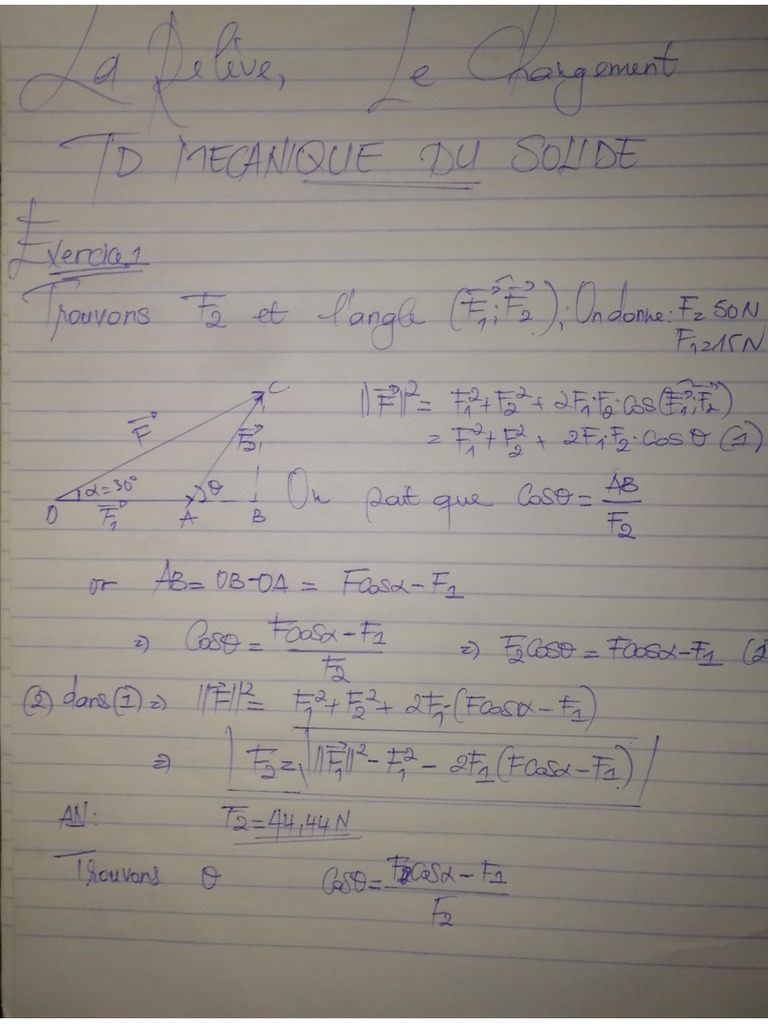 La Relève, Le Changement
TD MECANIQUE DU SOLIDE
Exercice1
Trouvons F₂ et l'angle (F⃗₁;F⃗₂); On donne: F= 50N
F₁=15N
C
F⃗
F⃗₂
α=30°
θ
O F⃗₁ A B
||F⃗||² = F₁²+F₂²+ 2F₁.F₂.cos(F⃗₁;F⃗₂)
= F₁²+F₂² + 2F₁.F₂.cos θ (1)
On sait que Cosθ = AB/F₂
or AB= OB-OA = Fcosα - F₁
=> Cosθ = (Fcosα - F₁)/F₂ => F₂Cosθ = Fcosα-F₁ (2
(2) dans (1) => ||F⃗||² = F₁²+F₂²+ 2F₁.(Fcosα - F₁)
=> F₂=√(||F⃗||² - F₁² - 2F₁(Fcosα-F₁))
AN: F₂=44,44N
Trouvons θ Cosθ = (Fcosα - F₁)/F₂